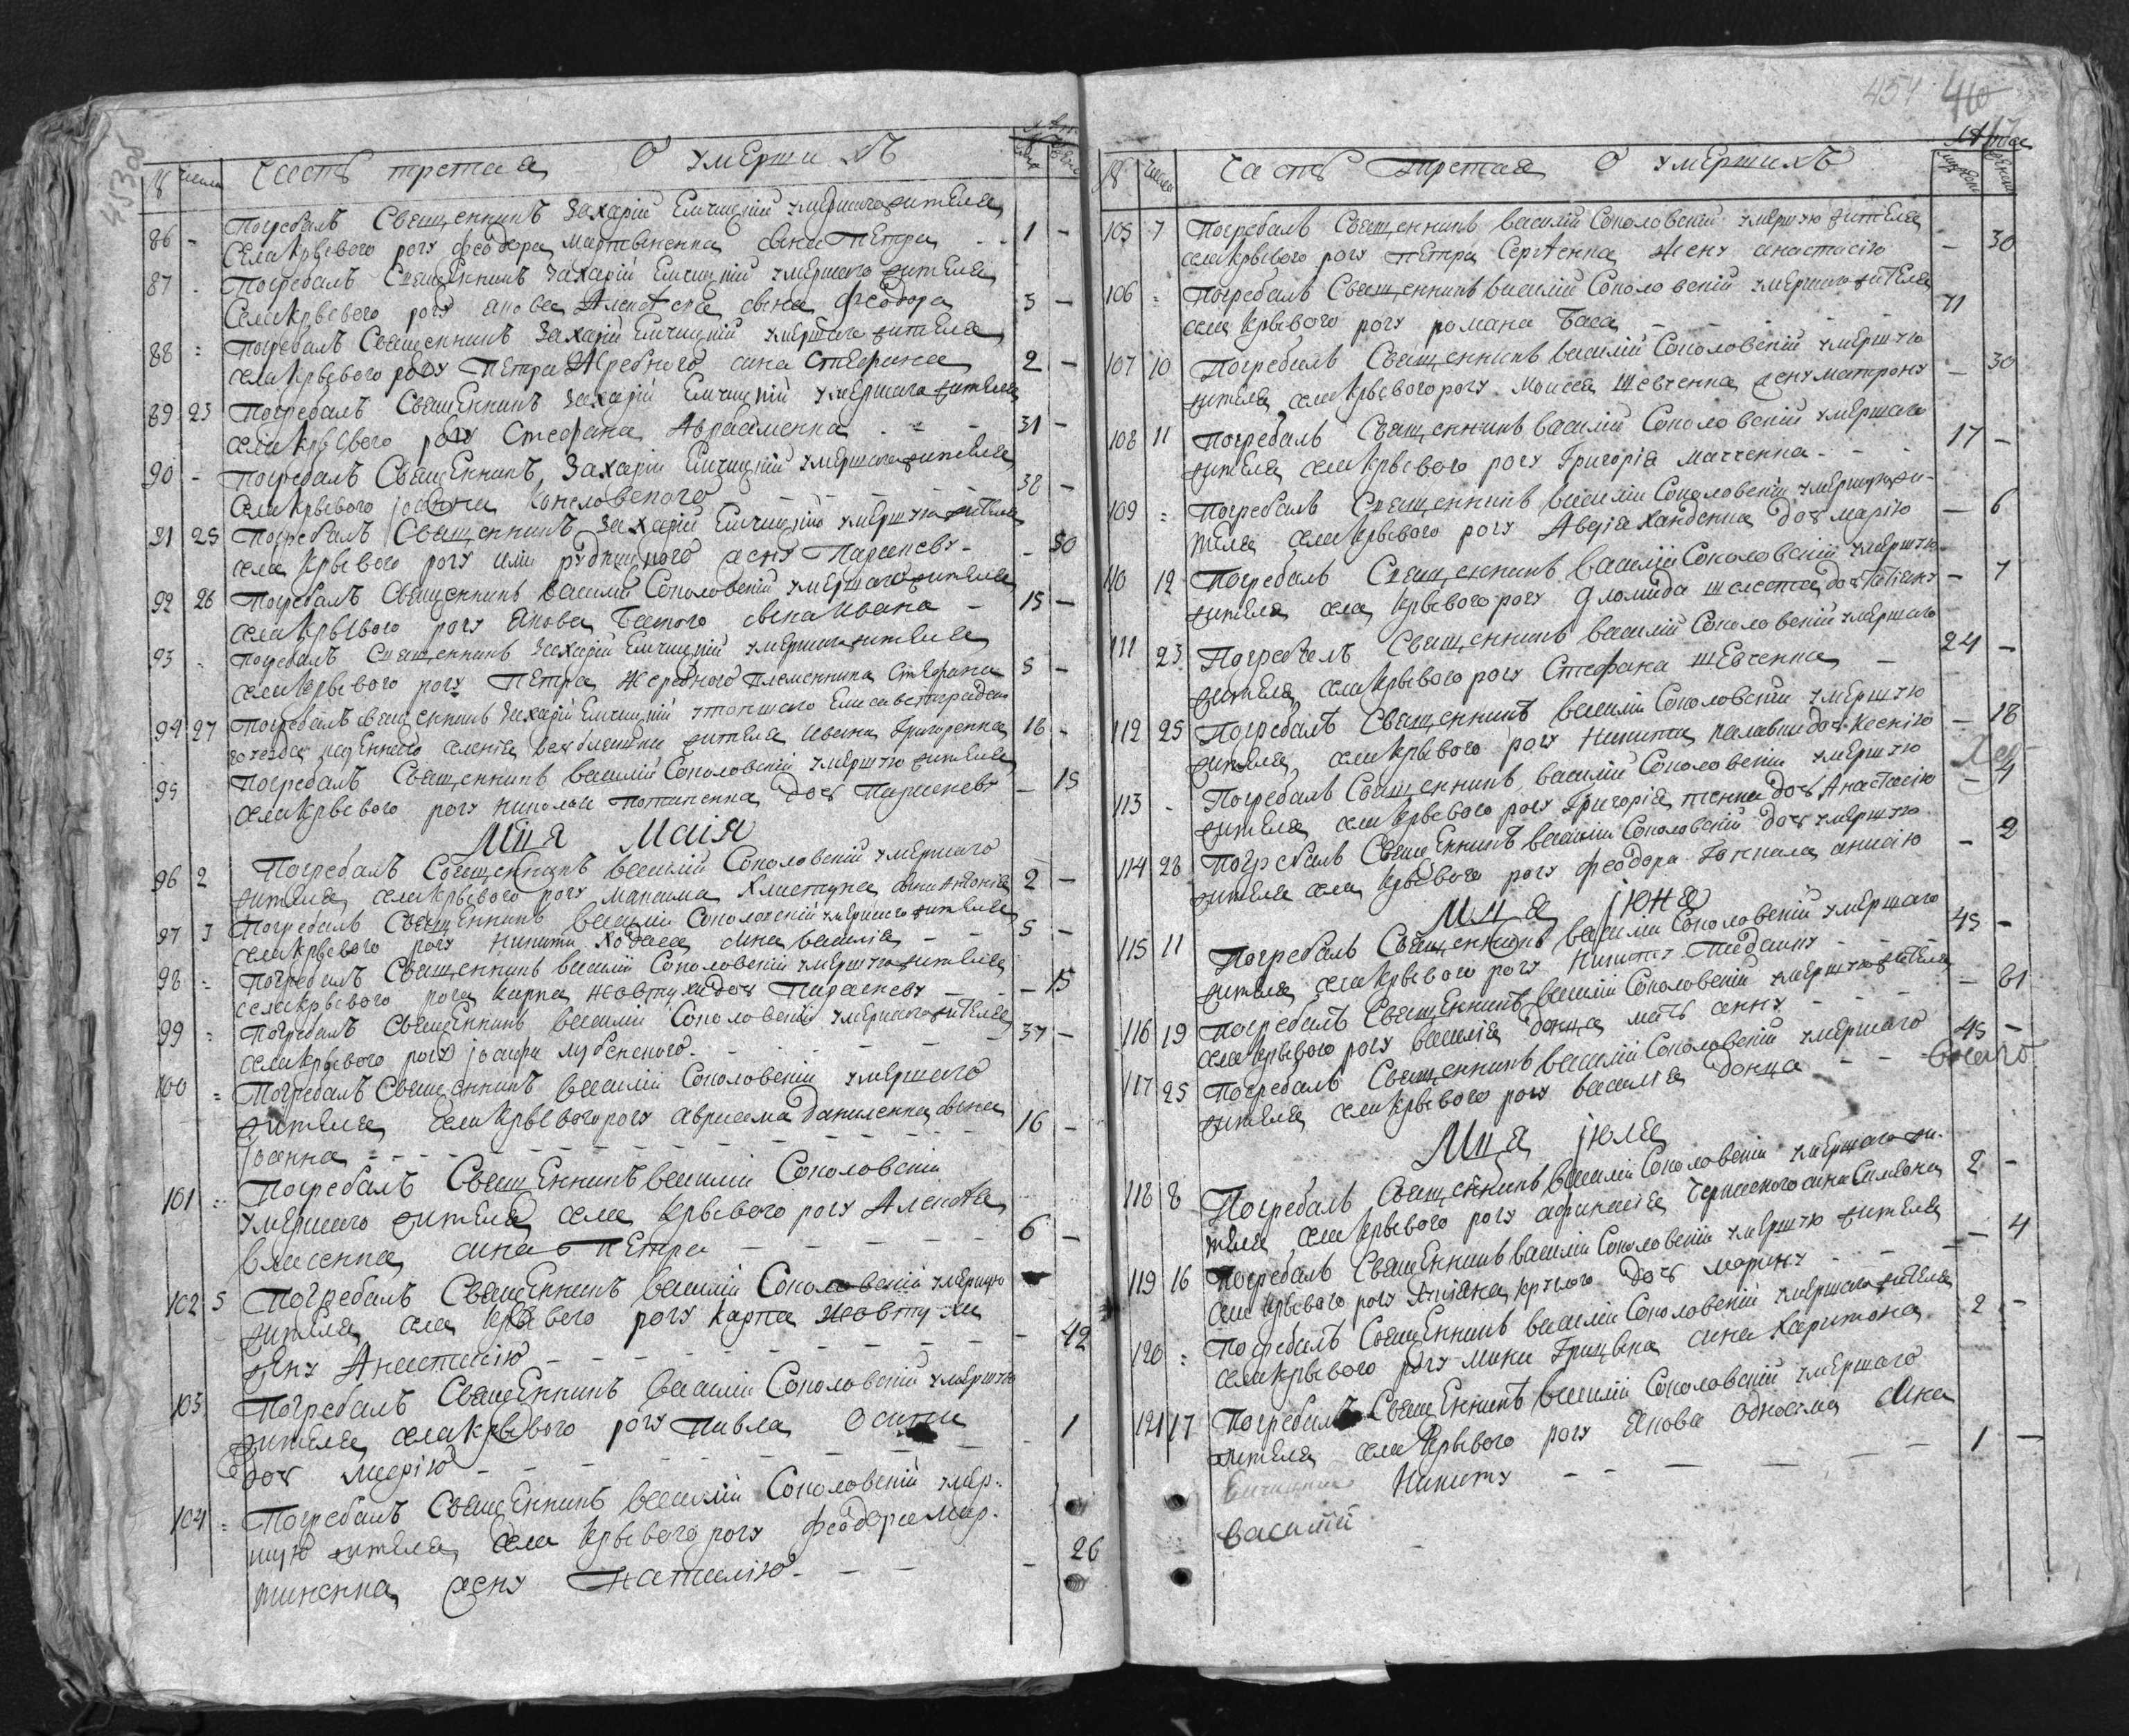 453об
№ числа Часть третая О умершихъ
86 - Погребалъ Священникъ Захарій Емчицкій умершаго жителя
села Крывого рогу Феодора Мартыненка сына Петра - - 1 -
87 - Погребалъ Священникъ Захарій Емчицкій умершаго жителя
села Крывого рогу Якова Алексѣева сына Феодора 3 -
88 = Погребалъ Священникъ Захарій Емчицкій умершаго жителя
села Крывого рогу Петра Жеребного сина Стефана 2 -
89 23 Погребалъ Священникъ Захарій Емчицкій умершаго жителя
села Крывого рогу Стефана Авраменка - = - 31 -
90 - Погребалъ Священникъ Захарій Емчицкій умершаго жителя
села Крывого Іоанна - - - - 38 -
91 25 Погребалъ Священникъ Захарій Емчицкій умершую жителя
села Крывого рогу жену Параскеву - - 50
92 26 Погребалъ Священникъ Василій Соколовскій умершаго жителя
села Крывого рогу Якова сына Ивана - 15 -
93 - Погребалъ Священникъ Захарій Емчицкій умершаго жителя
села Крывого рогу Петра Жеребного племенника Стефана 5 -
94 27 Погребалъ Священникъ Захарій Емчицкій утопшаго Елисаветградско
го уезда селенія жителя Ивана Григоренка 18 -
95 Погребалъ Священникъ Василій Соколовскій умершую жителя
села Крывого рогу Николая Потапенка дочь Параскеву - 15
Мця Маія
96 2 Погребалъ Священникъ Василій Соколовскій умершаго
жителя села Крывого рогу Максима Хлистуна сына Антонія 2 -
97 3 Погребалъ Священникъ Василій Соколовскій умершаго жителя
села Крывого рогу Никиты Ходаса сина Василія - - 5 -
98 = Погребалъ Священникъ Василій Соколовскій умершую жителя
села Крывого рога Карпа Жовтухи дочь Параскеву - - - 15
99 = Погребалъ Священникъ Василій Соколовскій умершаго жителя
села Крывого рогу Іосифа Лубенского - - - - 37 -
100 = Погребалъ Священникъ Василій Соколовскій умершаго
жителя села Крывого рогу Авраама Даниленка сына
Іоанна - - - - 16 -
101 = Погребалъ Священникъ Василій Соколовскій
умершаго жителя села Крывого рогу Алексѣя
Власенка сина Петра - - - - 6 -
102 5 Погребалъ Священникъ Василій Соколовскій умершую
жителя села Крывого рогу Карпа Жовтухи
жену Анастасію - - - - 42
103 Погребалъ Священникъ Василій Соколовскій умершую
жителя села Крывого рогу Павла
дочь Марію - - - - 1
104 = Погребалъ Священникъ Василій Соколовскій умер-
шую жителя села Крывого рогу Феодора Мар-
тиненка жену Наталію - - - - 26
454 410
№ числа Часть третая О умершихъ
105 7 Погребалъ Священникъ Василій Соколовскій умершую жителя
села Крывого рогу Петра Сергѣенка жену Анастасію - 30
106 = Погребалъ Священникъ Василій Соколовскій умершаго жителя
села Крывого рогу Романа Баса - - - - 71
107 10 Погребалъ Священникъ Василій Соколовскій умершую
жителя села Крывого рогу Моисея Шевченка жену Матрону - 30
108 11 Погребалъ Священникъ Василій Соколовскій умершаго
жителя села Крывого рогу Григорія Матченка - - 17 -
109 = Погребалъ Священникъ Василій Соколовскій умершую жи-
теля села Крывого рогу Аверія Ханденка дочь Марію - 6
110 12 Погребалъ Священникъ Василій Соколовскій умершую
жителя села Крывого рогу дочь Татіану - 7
111 23 Погребалъ Священникъ Василій Соколовскій умершаго
жителя села Крывого рогу Стефана Шевченка - 24 -
112 25 Погребалъ Священникъ Василій Соколовскій умершую
жителя села Крывого рогу Никиты дочь Ксенію - 18
113 - Погребалъ Священникъ Василій Соколовскій умершую
жителя села Крывого рогу Григорія дочь Анастасію - 4
114 28 Погребалъ Священникъ Василій Соколовскій дочь умершую
жителя села Крывого рогу Феодора Анисію - 2
Мця Іюня
115 11 Погребалъ Священникъ Василій Соколовскій умершаго
жителя села Крывого рогу Никиту - - - 45 -
116 19 Погребалъ Священникъ Василій Соколовскій умершую жителя
села Крывого рогу Василія Донца мать Анну - - - - 61
117 25 Погребалъ Священникъ Василій Соколовскій умершаго
жителя села Крывого рогу Василія Донца - - 45 -
Мця Іюля
118 8 Погребалъ Священникъ Василій Соколовскій умершаго жи-
теля села Крывого рогу Афанасія Черкаского сина Симеона 2 -
119 16 Погребалъ Священникъ Василій Соколовскій умершую жителя
села Крывого рогу Круглого дочь Марину - - - 4
120 = Погребалъ Священникъ Василій Соколовскій умершаго жителя
села Крывого рогу Мины Грицына сина Харитона 2 -
121 17 Погребалъ Священникъ Василій Соколовскій умершаго
жителя села Крывого рогу Якова сина
Никиту - - - - 1 -
Василій